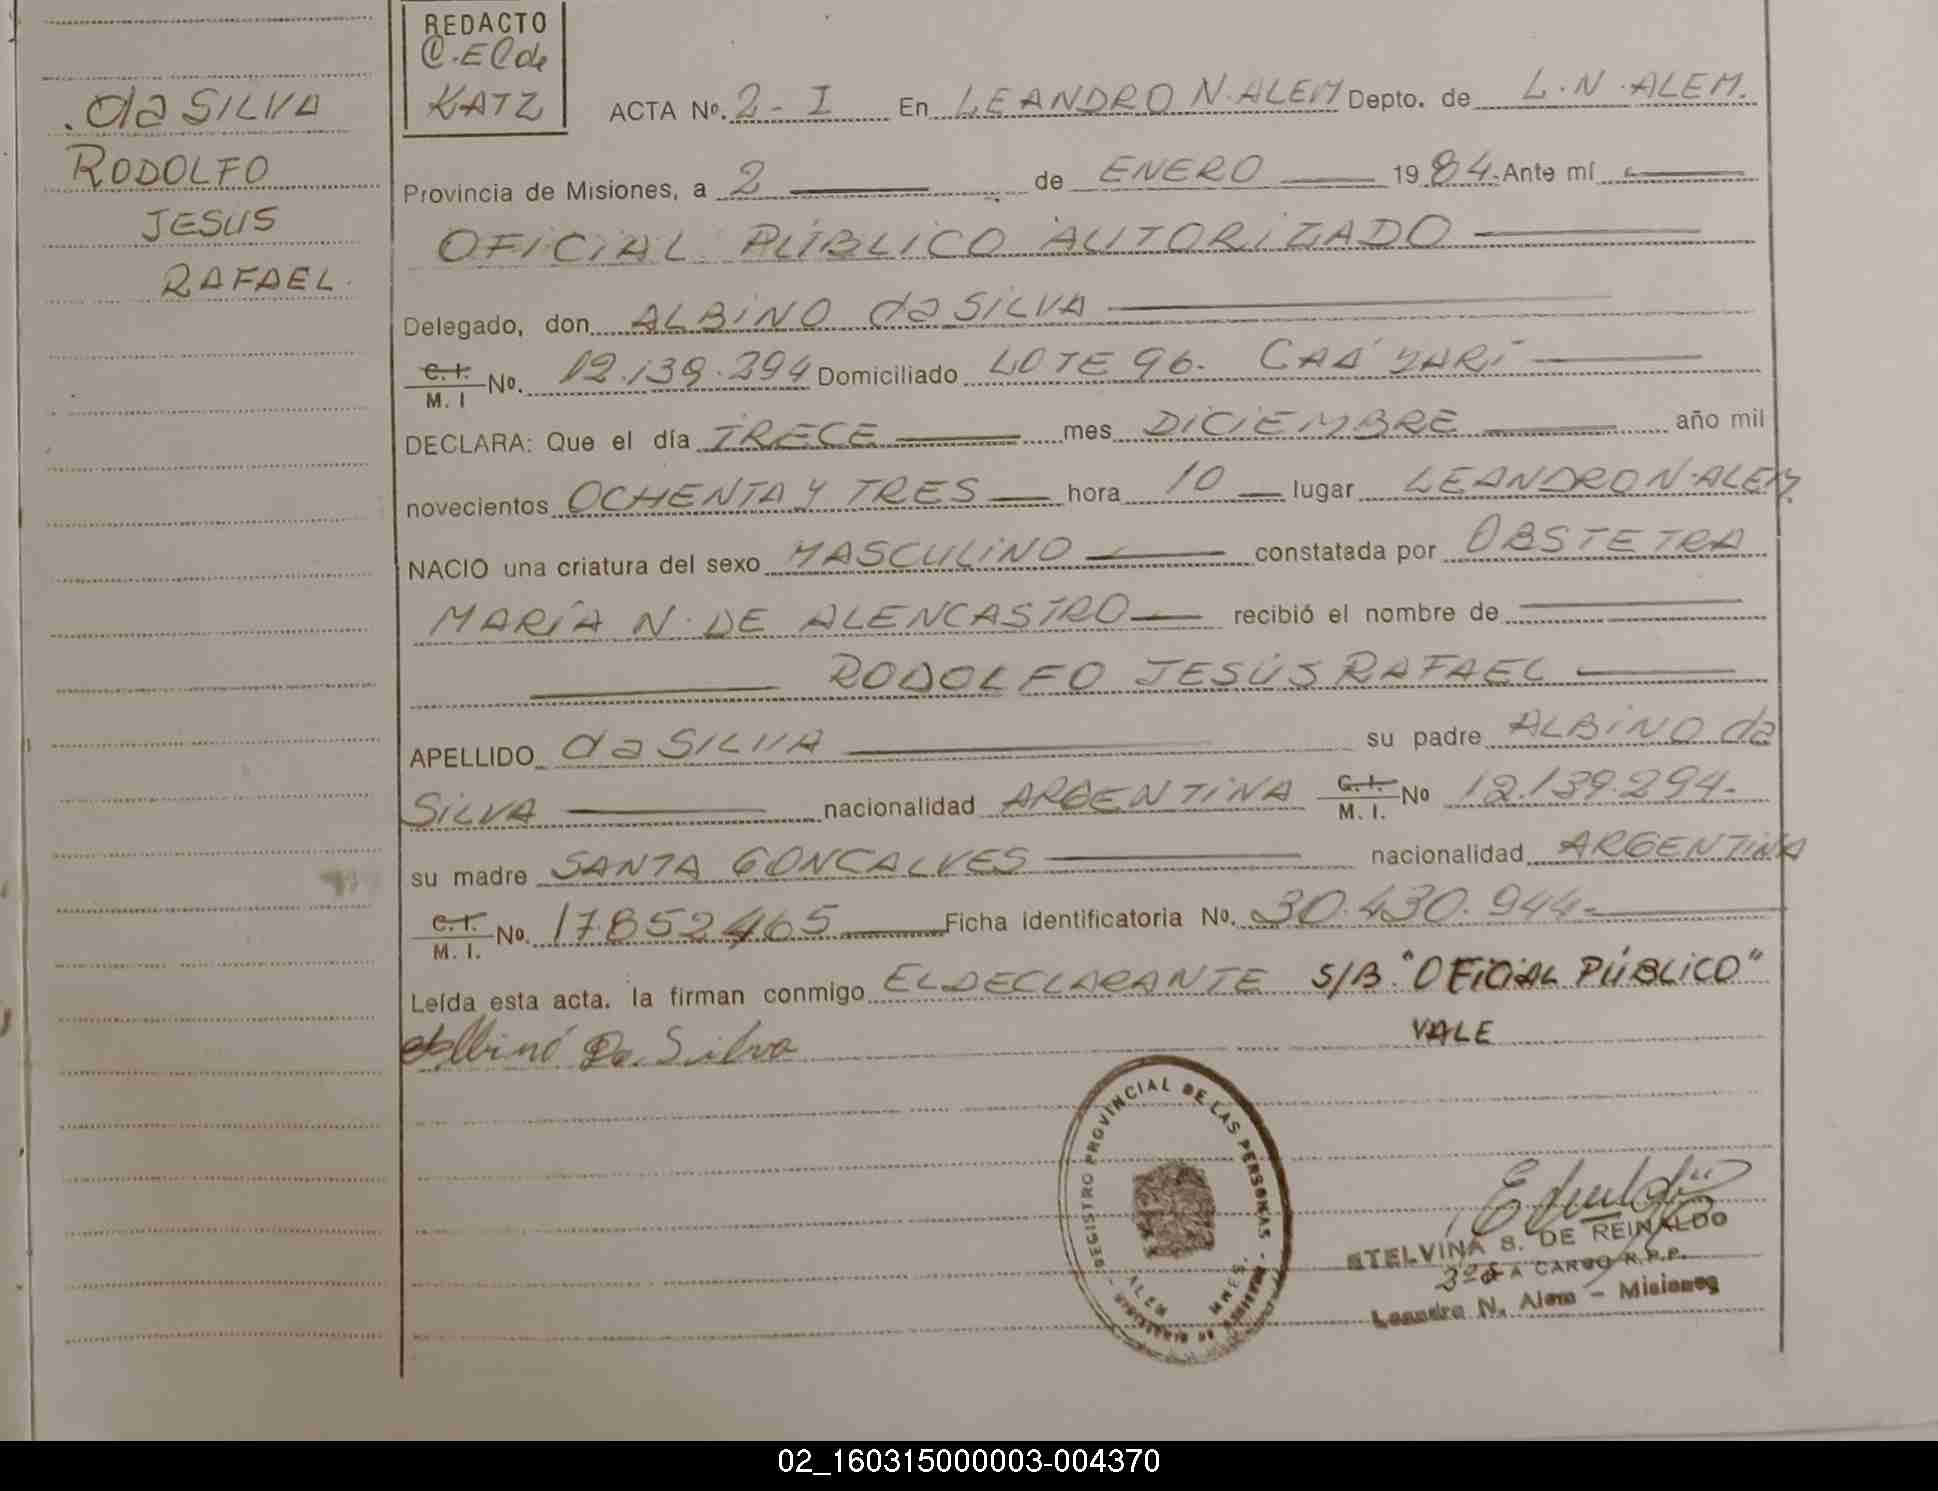 da SILVA
RODOLFO
JESUS
RAFAEL.
REDACTO
C. E. C de
KATZ
ACTA Nº. 2 - I En LEANDRO N. ALEM Depto. de L. N. ALEM.
Provincia de Misiones, a 2 de ENERO 1984. Ante mí
OFICIAL PÚBLICO AUTORIZADO
Delegado, don ALBINO da SILVA
C. I. / M. I Nº. 12.139.294 Domiciliado LOTE 96. CAÁ YARÍ
DECLARA: Que el día TRECE mes DICIEMBRE año mil
novecientos OCHENTA Y TRES hora 10 lugar LEANDRO N. ALEM.
NACIO una criatura del sexo MASCULINO constatada por OBSTETRA
MARÍA N. DE ALENCASTRO recibió el nombre de
RODOLFO JESÚS RAFAEL
APELLIDO da SILVA su padre ALBINO da
SILVA nacionalidad ARGENTINA C. I. / M. I. Nº 12.139.294.
su madre SANTA GONCALVES nacionalidad ARGENTINA
C. I. / M. I. Nº. 17852465 Ficha identificatoria Nº. 30.430.944.
Leída esta acta. la firman conmigo EL DECLARANTE S/B. "OFICIAL PÚBLICO"
VALE
Albino Da Silva
REGISTRO PROVINCIAL DE LAS PERSONAS
ALEM
STELVINA S. DE REINALDO
A CARGO R.P.P.
Leandro N. Alem - Misiones
02_160315000003-004370